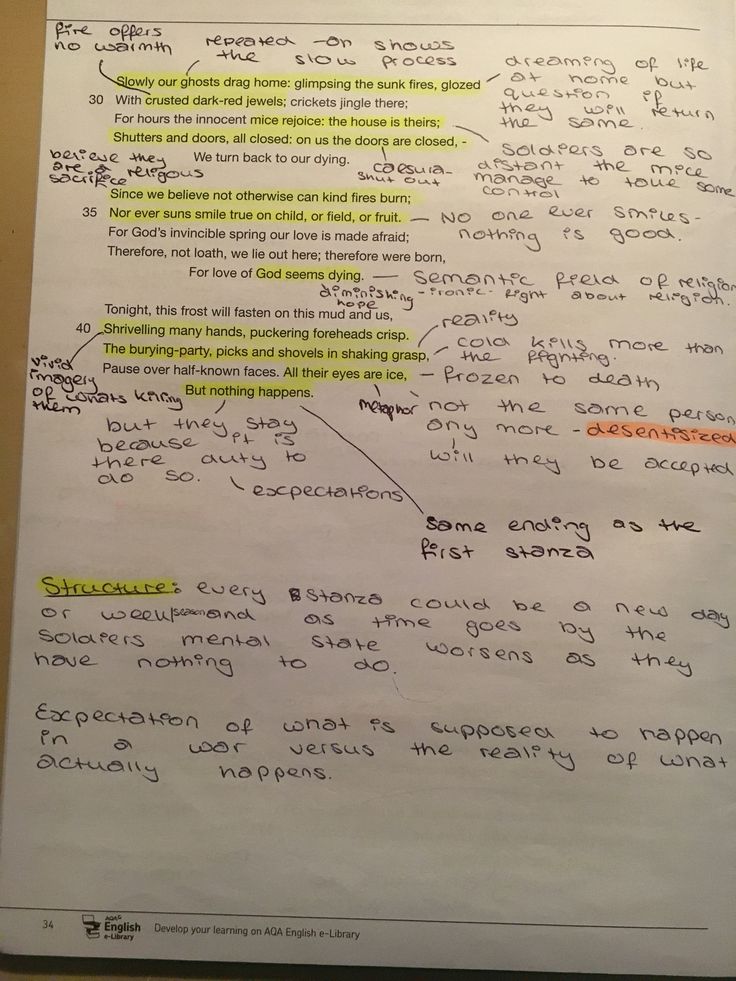 fire offers
no warmth
repeated -on shows
the slow process
dreaming of life
at home but
question if
they will return
the same.
Slowly our ghosts drag home: glimpsing the sunk fires, glozed
30 With crusted dark-red jewels; crickets jingle there;
For hours the innocent mice rejoice: the house is theirs;
Shutters and doors, all closed: on us the doors are closed, -
We turn back to our dying.
believe they
are a religous
sacrifice
caesura-
shut out
soldiers are so
distant the mice
manage to take some
control
Since we believe not otherwise can kind fires burn;
35 Nor ever suns smile true on child, or field, or fruit.
For God's invincible spring our love is made afraid;
Therefore, not loath, we lie out here; therefore were born,
For love of God seems dying.
No one ever smiles-
nothing is good.
semantic field of religion
-ironic- fight about religion.
diminishing
hope
Tonight, this frost will fasten on this mud and us,
40 Shrivelling many hands, puckering foreheads crisp.
The burying-party, picks and shovels in shaking grasp,
Pause over half-known faces. All their eyes are ice,
But nothing happens.
reality
cold kills more than
the fighting.
frozen to death
vivid
imagery
of whats killing
them
metaphor
not the same person
any more - desentisized
will they be accepted
but they stay
because it is
there duty to
do so.
expectations
same ending as the
first stanza
Structure: every stanza could be a new day
or week/season and as time goes by the
soldiers mental state worsens as they
have nothing to do.
Expectation of what is supposed to happen
in a war versus the reality of what
actually happens.
34
AQA
English
e-Library
Develop your learning on AQA English e-Library